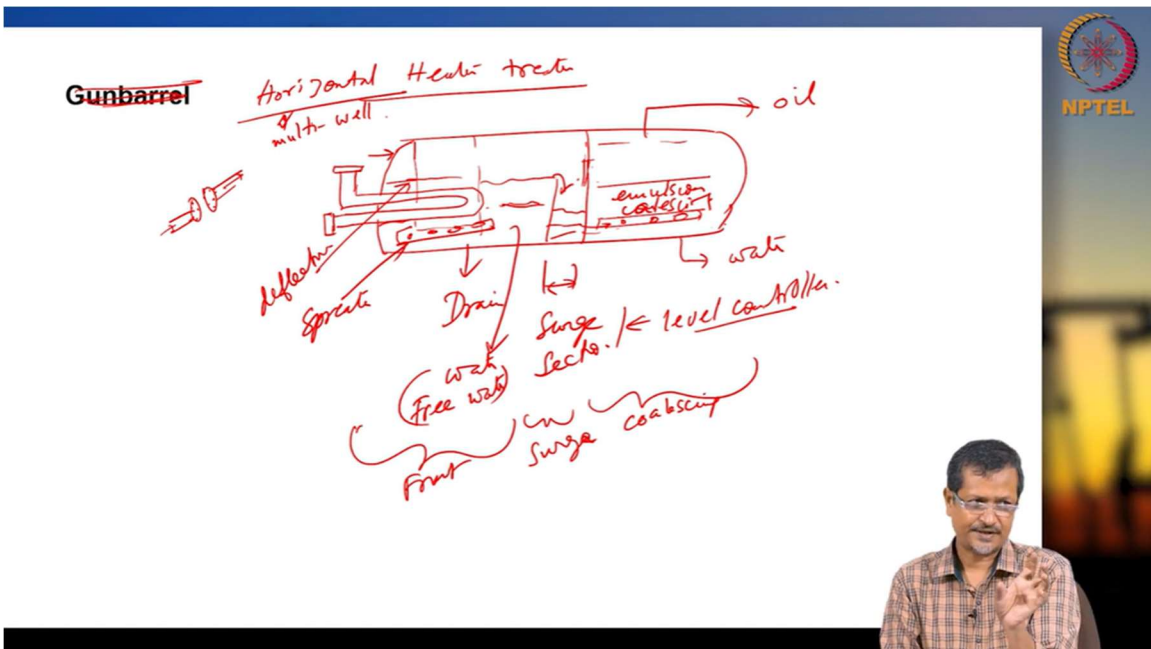 Gunbarrel
Horizontal Heater treater
multi-well.
oil
emulsion
coalescing
water
deflector
Spreader
Drain
Surge
Section
level controller.
water
(Free water)
Front
Surge
coalescing
NPTEL